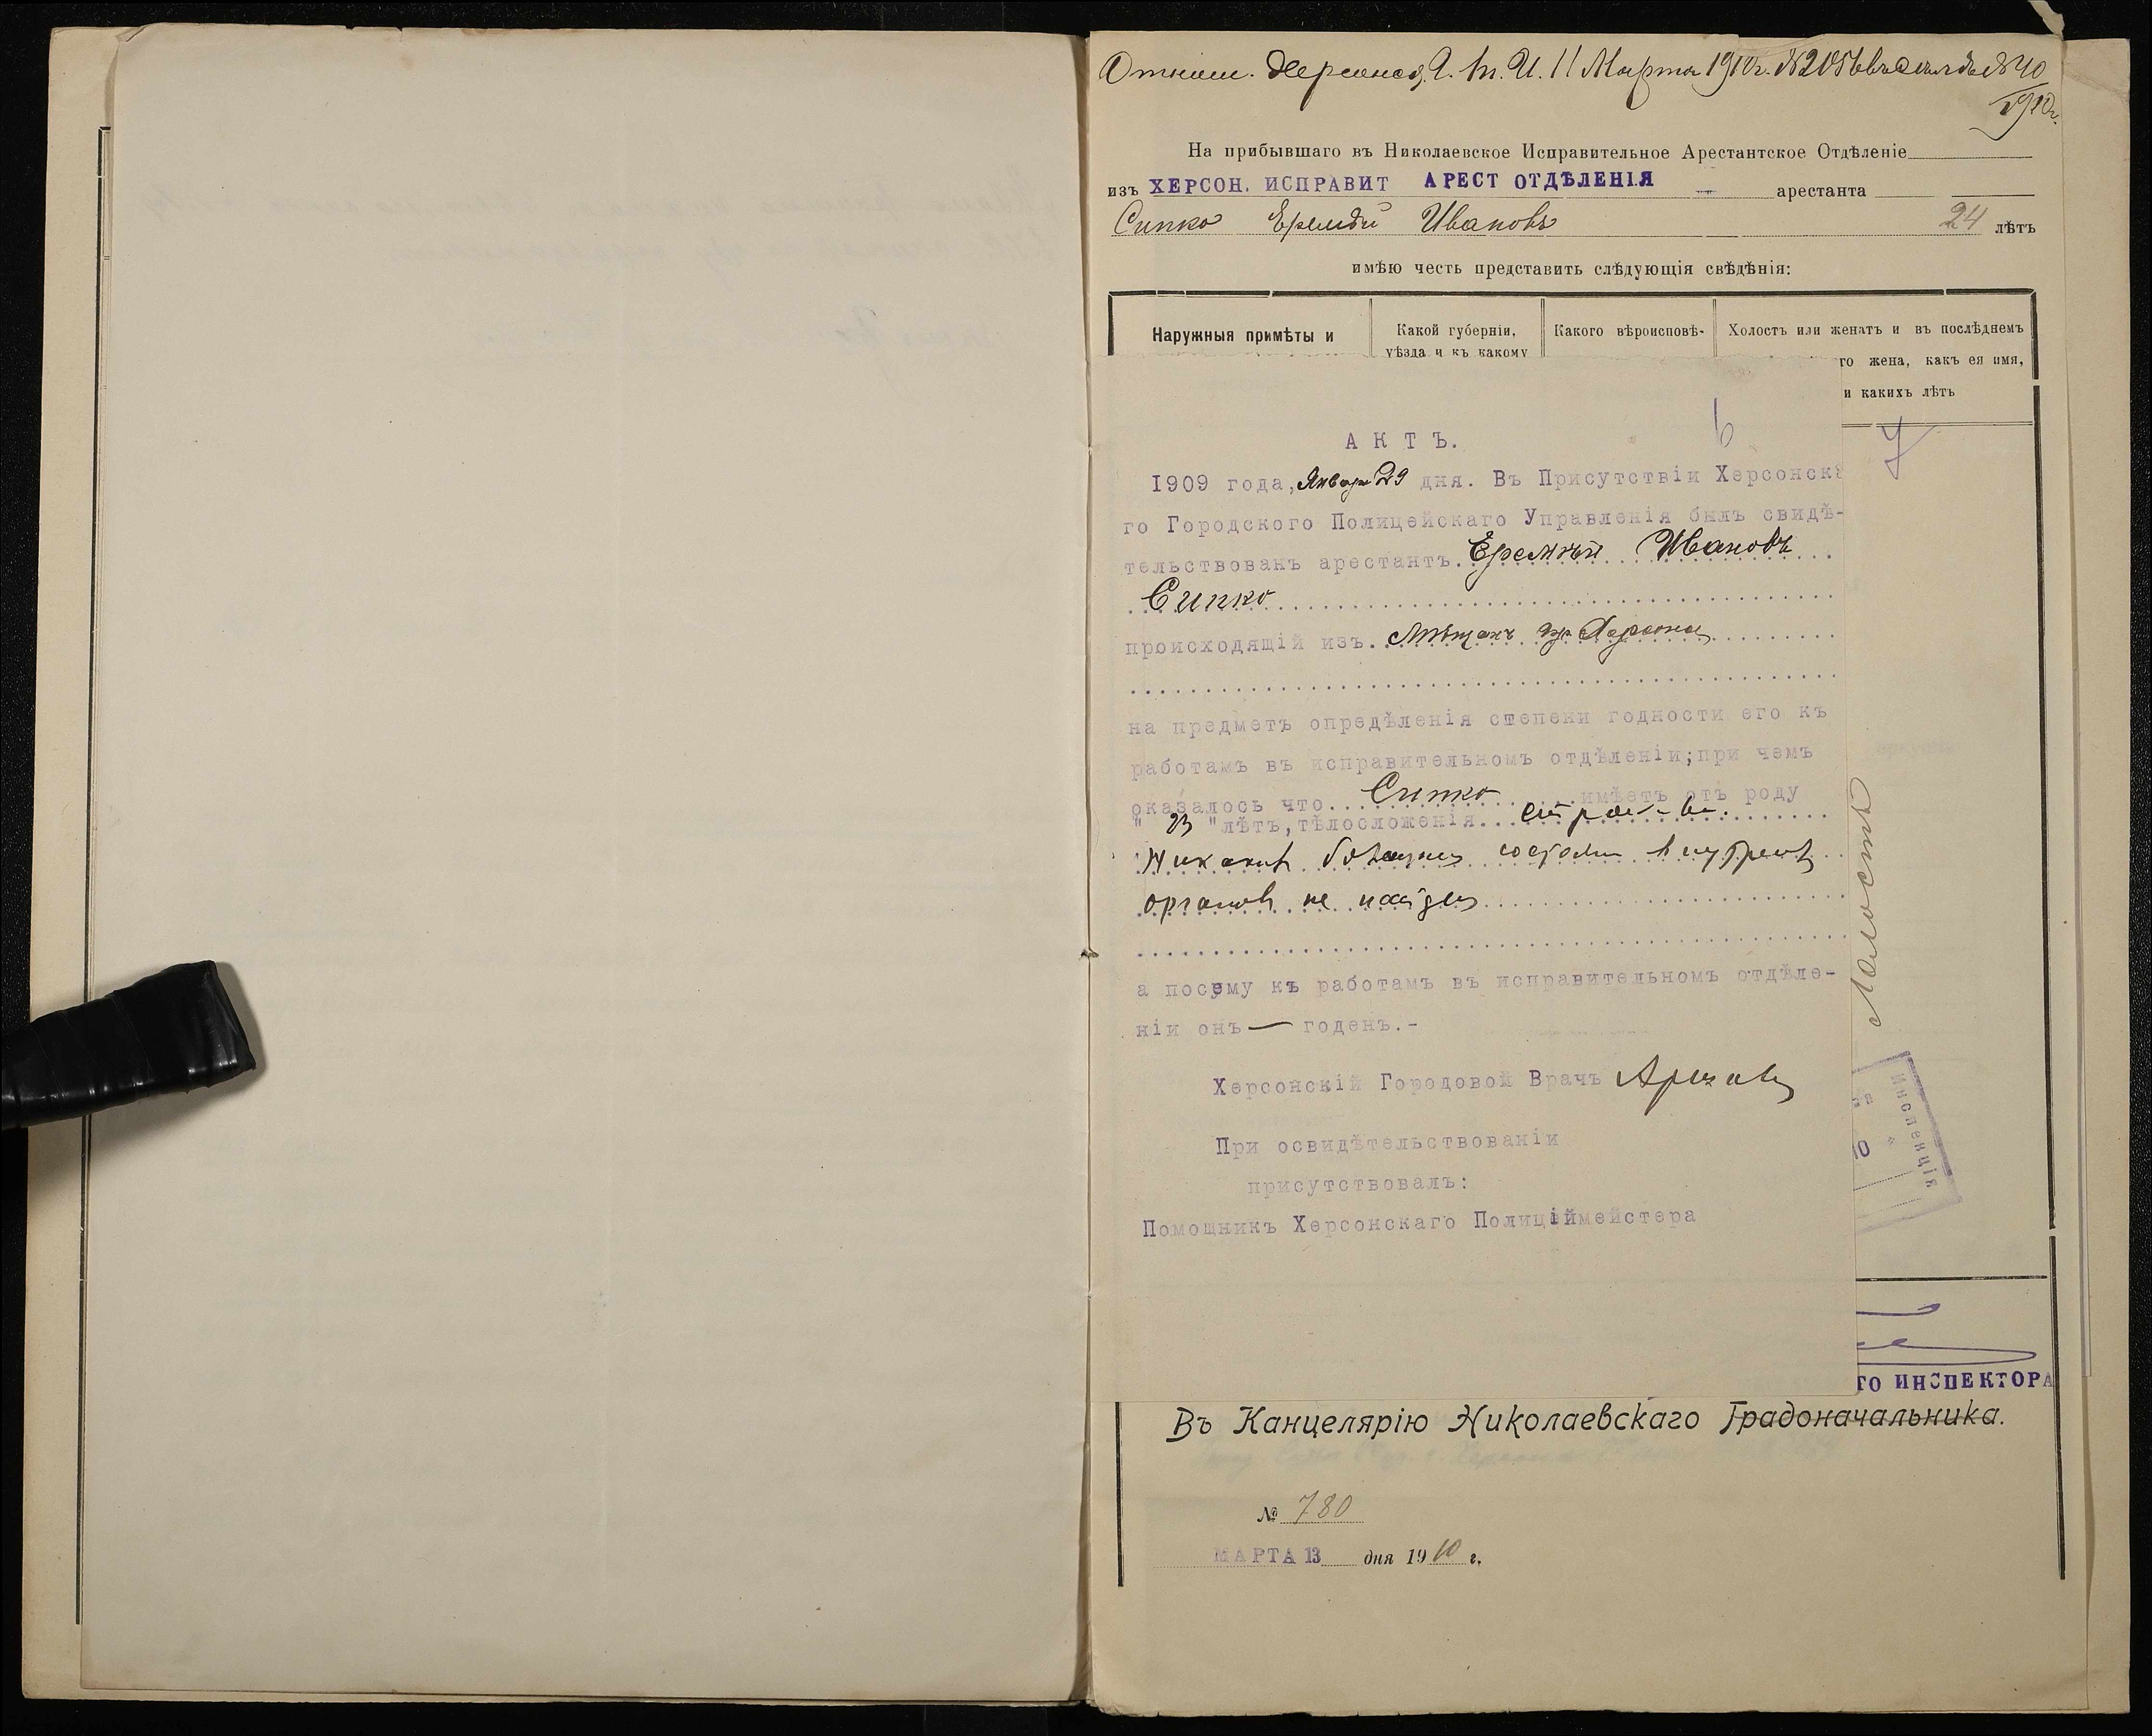 Отнош. Херсонс. Г. Т. И. 11 Марта 1910 г. №
1910 г.
На прибывшаго въ Николаевское Исправительное Арестантское Отдѣленіе
изъ ХЕРСОН. ИСПРАВИТ АРЕСТ ОТДѢЛЕНІЯ арестанта
Сипко Еремѣй Ивановъ 24 лѣтъ
имѣю честь представить слѣдующія свѣдѣнія:
Наружныя примѣты и
Какой губерніи,
уѣзда и къ какому
Какого вѣроисповѣ-
Холостъ или женатъ и въ послѣднемъ
го жена, какъ ея имя,
и какихъ лѣтъ
6
7
АКТЪ.
1909 года, Января 29 дня. Въ Присутствіи Херсонска
го Городского Полицейскаго Управленія былъ свидѣ-
тельствованъ арестантъ. Еремѣй Ивановъ
Сипко
происходящій изъ. Мѣщанъ гор. Херсона
на предметъ опредѣленія степени годности его къ
работамъ въ исправительномъ отдѣленіи;при чемъ
оказалось что... Сипко ...имѣетъ отъ роду
" 23 "лѣтъ,тѣлосложенія...
Никакихъ внутрен
органовъ не найдено
а посему къ работамъ въ исправительномъ отдѣле-
ніи онъ — годенъ.-
Херсонскій Городовой Врачъ
При освидѣтельствованіи
присутствовалъ:
Помощникъ Херсонскаго Полиціймейстера
Холостъ
Инспекція
ГО ИНСПЕКТОРА
Въ Канцелярію Николаевскаго Градоначальника.
№ 780
МАРТА 13 дня 1910 г.